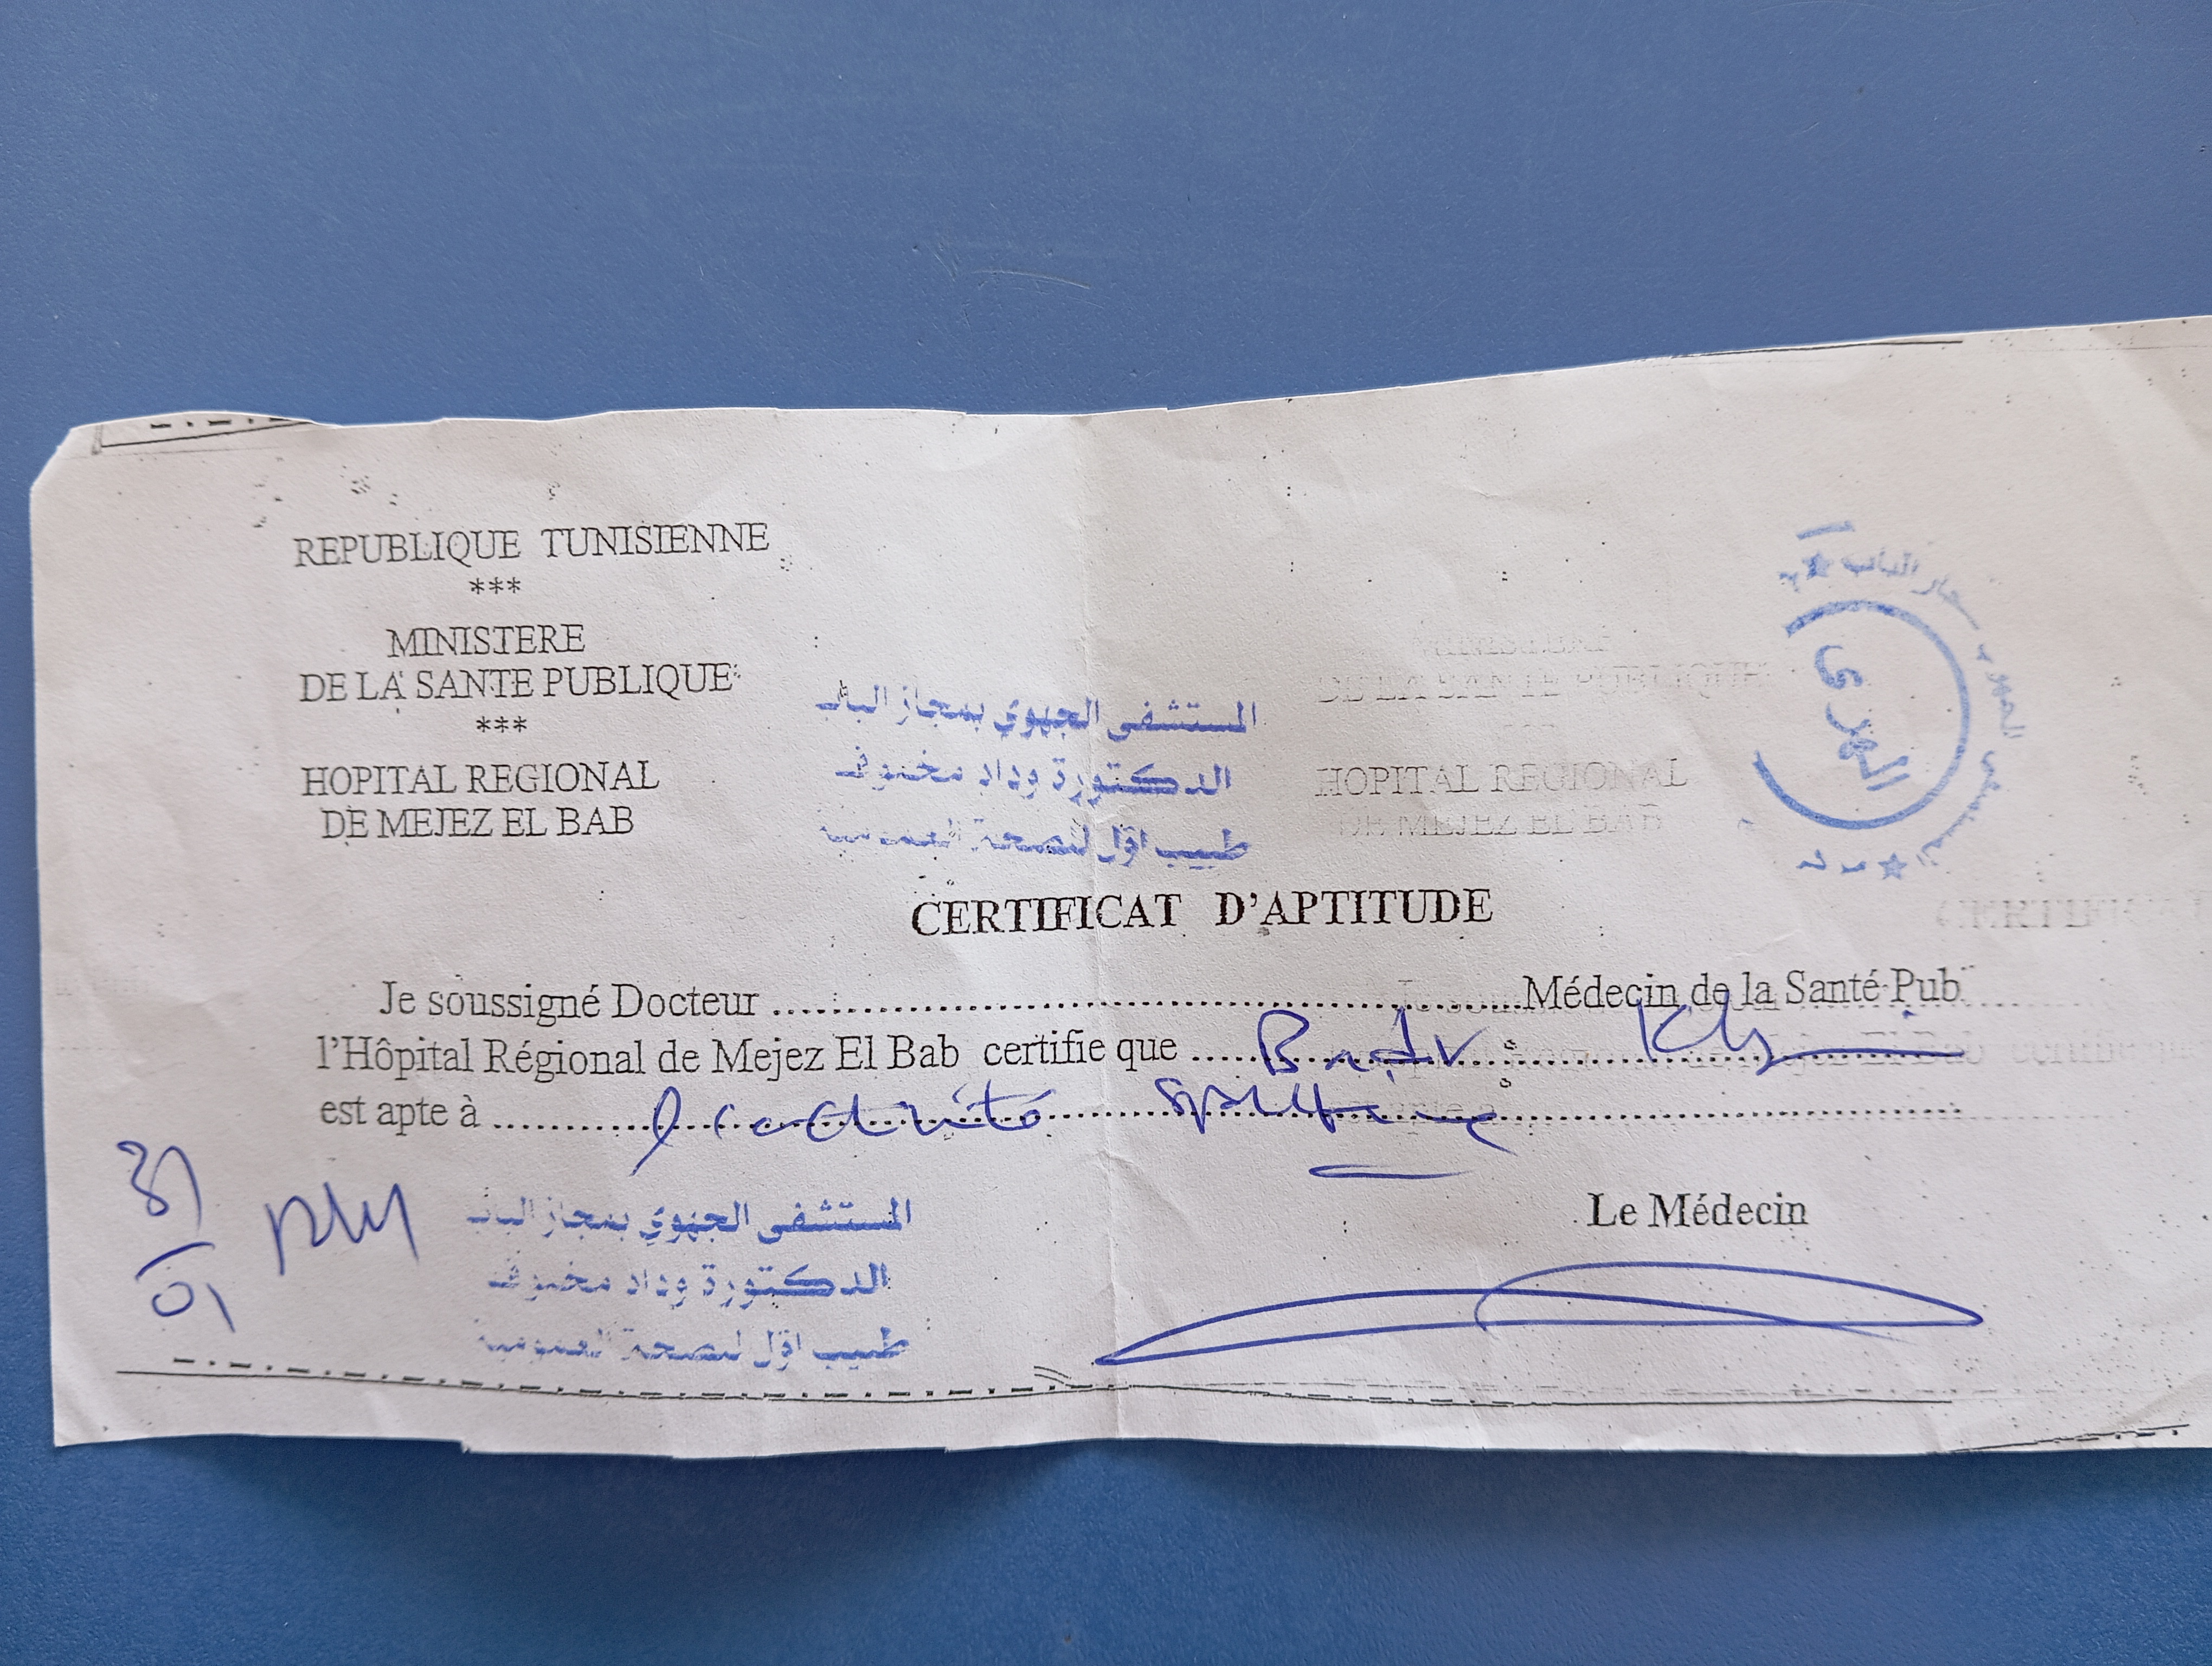 REPUBLIQUE TUNISIENNE
***
MINISTERE
DE LA SANTE PUBLIQUE
***
HOPITAL REGIONAL
DE MEJEZ EL BAB
المستشفى الجهوي بمجاز الباب
الدكتورة وداد مخلوف
طبيب اول للصحة العمومية
MINISTERE
DE LA SANTE PUBLIQUE
HOPITAL REGIONAL
DE MEJEZ EL BAB
CERTIFICAT D'APTITUDE
Je soussigné Docteur ........................ Médecin de la Santé Pub
l'Hôpital Régional de Mejez El Bab certifie que
est apte à l'activité sportive
Le Médecin
المستشفى الجهوي بمجاز الباب
الدكتورة وداد مخلوف
طبيب اول للصحة العمومية